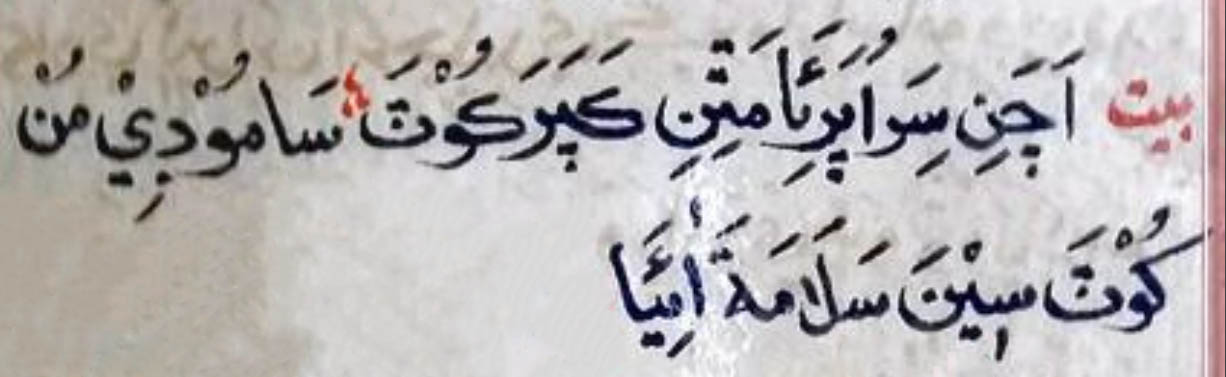 بيت اَچَنِ سِرَ اُپَرِئَا مَتِنِ ڪَپَرَ ڪُوْتَ سَامُوْدِيْ مُنْ
ڪُوْتَ سِيْنَ سَلَامَةَ اِئَيَا